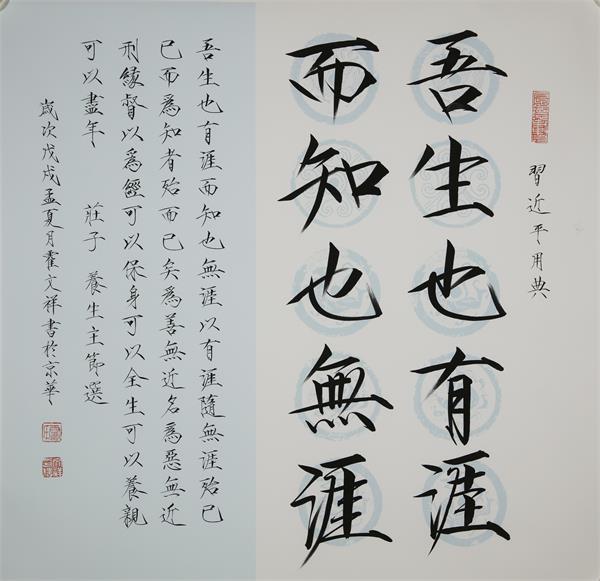 習近平用典
吾生也有涯
而知也無涯
吾生也有涯而知也無涯以有涯隨無涯殆已
已而為知者殆而已矣為善無近名為惡無近
刑緣督以為經可以保身可以全生可以養親
可以盡年 莊子 養生主節選
歲次戊戌孟夏月霍文祥書於京華